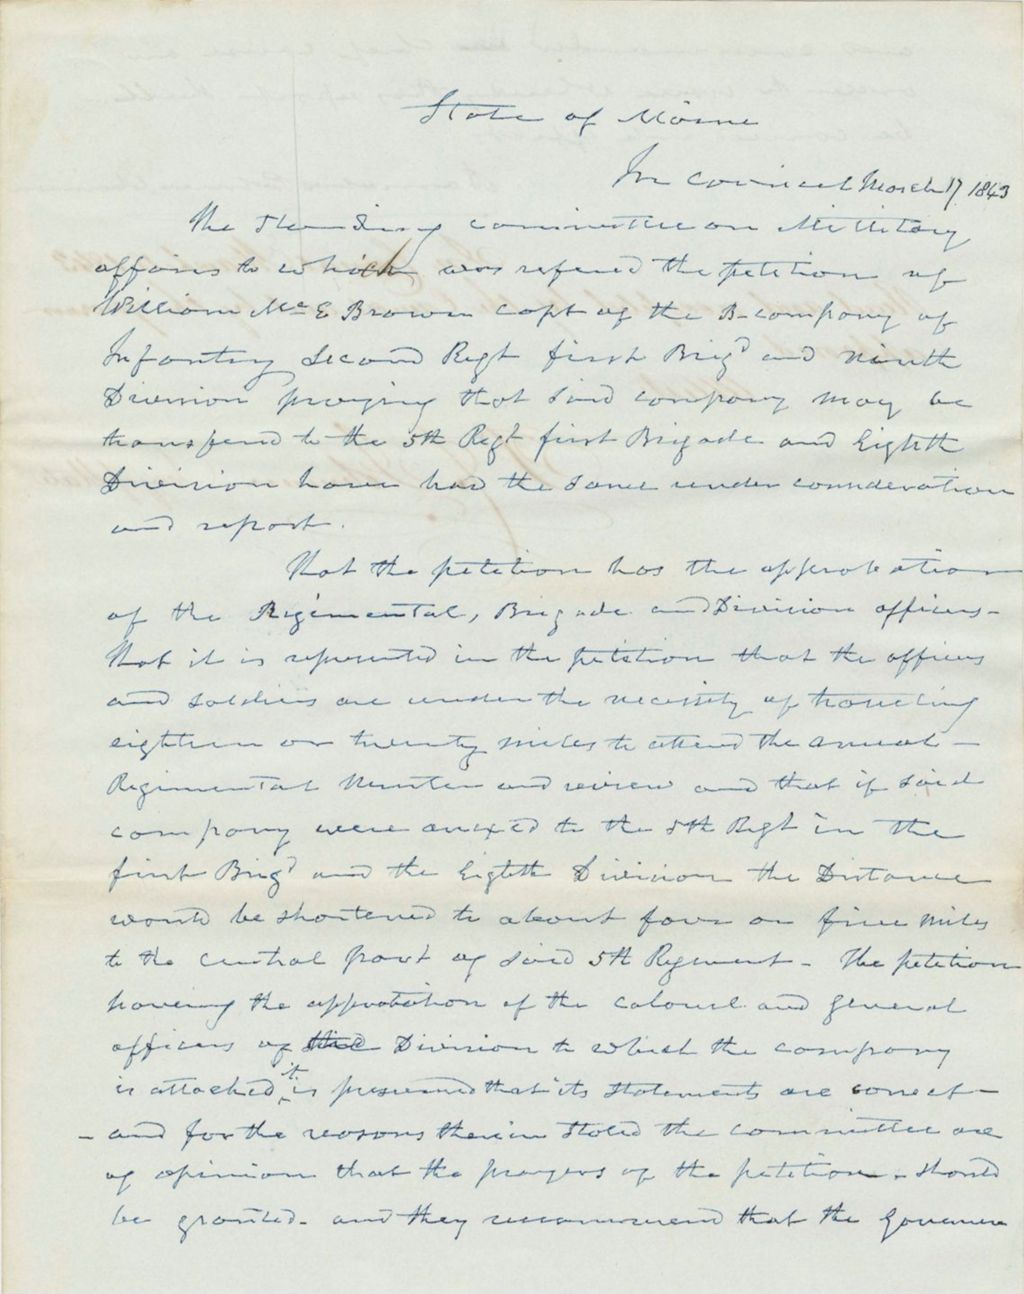 State of Maine
In Council March 17 1843
The Standing committee on Millitary
affairs to which was refered the petition of
William Mc E Brown capt of the B-company of
Infantry Second Regt first Brigd and ninth
Division praying that said company may be
transfered to the 5th Regt first Brigade and Eighth
Division have had the same under consideration
and report.
That the petition has the approbation
of the Regimental, Brigade and Division officers-
that it is represented in the petition that the officers
and soldiers are under the necessity of traveling
eighteen or twenty miles to attend the anual-
Regimental Muster and review and that if said
company were anexed to the 5th Regt in the
first Brigd and the Eighth Division the Distance
would be shortened to about four or five miles
to the central part of said 5th Regiment - The petition
having the approbation of the colonel and general
officers of Division to which the company
is attached it is presumed that its statements are correct-
- and for the reasons therein stated the committee are
of opinion that the prayers of the petition - should
be granted - and they recommend that the Governor